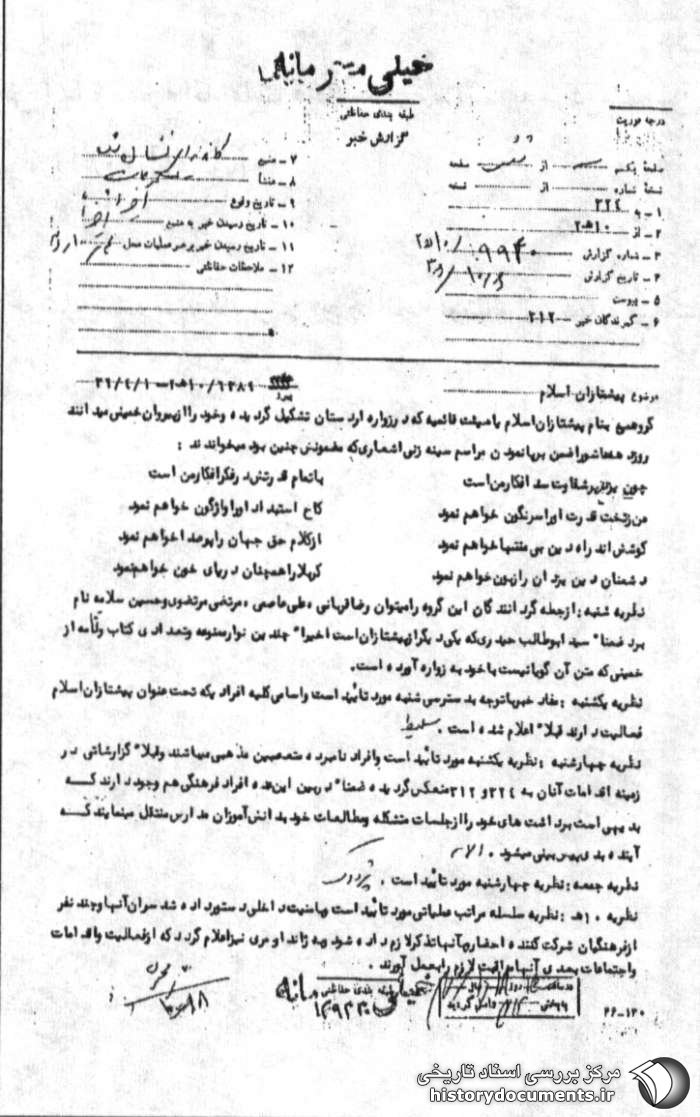 خیلی محرمانه
طبقه بندی حفاظتی
گزارش خبر
درجه فوریت
صفحه یکم از صفحه
نسخه شماره از نسخه
۱ - به ۳۲۴
۲ - از ۱۰ه۲
۳ - شماره گزارش
۴ - تاریخ گزارش
۵ - پیوست
۶ - گیرندگان خبر ۳۱۲
۷ - منبع
۸ - منشأ
۹ - تاریخ وقوع
۱۰ - تاریخ رسیدن خبر به منبع
۱۱ - تاریخ رسیدن خبر به رهبر عملیات محل
۱۲ - ملاحظات حفاظتی
موضوع پیشتازان اسلام
پیرو
گروهی بنام پیشتازان اسلام یا هیئت قائمیه که در زواره اردستان تشکیل گردیده و خود را از پیروان خمینی میدانند
روز عاشورا ضمن برپا نمودن مراسم سینه زنی اشعاری که مضمونش چنین بود میخواندند :
چون سد افکار من است با تمام قدرتش در فکر افکار من است
من ز تخت قدرت او را سرنگون خواهم نمود کاخ استبداد او را واژگون خواهم نمود
کوشش اندر راه دین بی منتها خواهم نمود از کلام حق جهان را پر صدا خواهم نمود
دشمنان دین یزدان را زبون خواهم نمود کربلا را همچنان دریای خون خواهم نمود
نظریه شنبه : از جمله گردانندگان این گروه را میتوان رضا قربانی ، علی عاصمی ، مرتضی مرتضوی و حسین سلامه نام
برد ضمنا" سید ابوطالب حیدری که یکی دیگر از پیشتازان است اخیرا" چندین نوار ممنوعه و تعدادی کتاب و نامه از
خمینی که متن آن گویا نیست با خود به زواره آورده است.
نظریه یکشنبه : مفاد خبر با توجه بدسترسی شنبه مورد تأیید است و اسامی کلیه افرادیکه تحت عنوان پیشتازان اسلام
فعالیت دارند قبلا" اعلام شده است .
نظریه چهارشنبه : نظریه یکشنبه مورد تأیید است و افراد نامبرده متعصبین مذهبی میباشند و قبلا" گزارشاتی در
زمینه اقدامات آنان به ۳۲۴ و ۳۱۲ منعکس گردیده ضمنا" در بین این عده افراد فرهنگی هم وجود دارند که
بدیهی است برداشت های خود را از جلسات متشکله و مطالعات خود بدانش آموزان مدارس منتقل مینمایند که
آینده بدی پیش بینی میشود .
نظریه جمعه : نظریه چهارشنبه مورد تأیید است .
نظریه ۱۰ه : نظریه سلسله مراتب عملیاتی مورد تأیید است و بامنیت داخلی دستور داده شد سران آنها و چند نفر
از فرهنگیان شرکت کننده احضار و بآنها تذکر لازم داده شود و به ژاندارمری نیز اعلام گردد که از فعالیت و اقدامات
و اجتماعات بعدی آنها مراقبت لازم را بعمل آورند .
طبقه بندی حفاظتی
خیلی محرمانه
۲۶-۱۲۰
مرکز بررسی اسناد تاریخی
historydocuments.ir